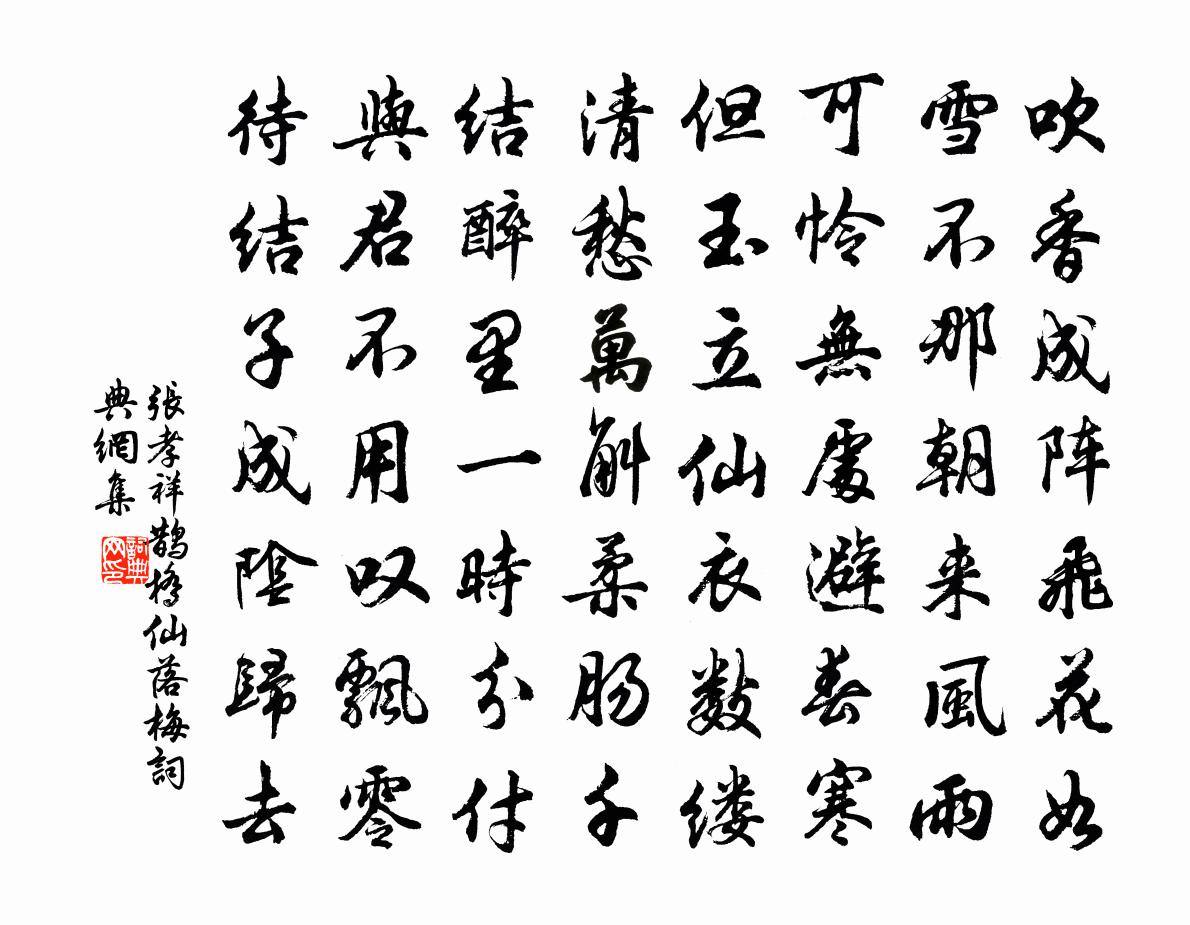 吹香成阵飛花如
雪不那朝来風雨
可怜無處避春寒
但玉立仙衣数缕
清愁萬斛柔肠千
结醉里一時分付
與君不用叹飘零
待结子成陰歸去
張孝祥鵲橋仙落梅詞
典網集
詞典網印